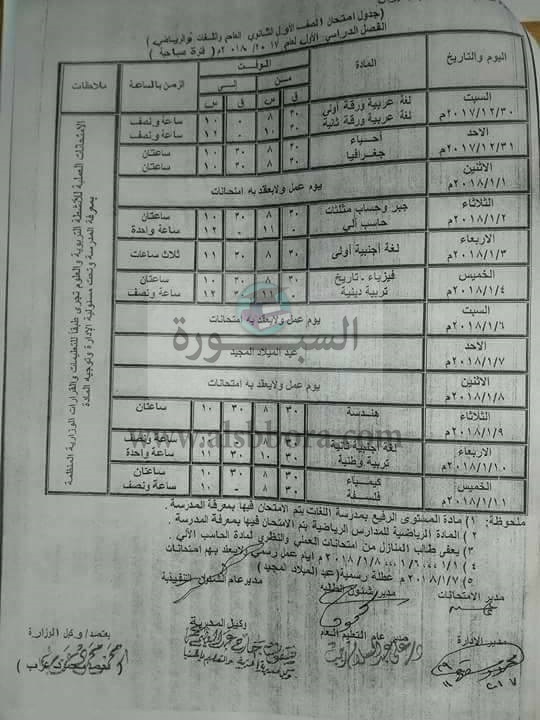 (جدول امتحان الصف الأول الثانوى العام واللغات والرياضى)
الفصل الدراسى الأول لعام ٢٠١٧/ ٢٠١٨م ( فترة صباحية )
اليوم والتاريخ المادة الوقت الزمن بالساعة ملاحظات
من إلى
ق س ق س
السبت ٢٠١٧/١٢/٣٠م
لغة عربية ورقة أولى ٣٠ ٨ ٠ ١٠ ساعة ونصف
لغة عربية ورقة ثانية
ساعة ونصف
الاحد ٢٠١٧/١٢/٣١م
أحياء ٣٠ ٨ ٣٠ ١٠ ساعتان
جغرافيا
ساعتان
الاثنين ٢٠١٨/١/١م
يوم عمل ولايعقد به امتحانات
الثلاثاء ٢٠١٨/١/٢م
جبر وحساب مثلثات ٣٠ ٨ ٣٠ ١٠ ساعتان
حاسب آلي ٠ ١١ ٠ ١٢ ساعة واحدة
الاربعاء ٢٠١٨/١/٣م
لغة أجنبية أولى ٣٠ ٨ ٣٠ ١١ ثلاث ساعات
الخميس ٢٠١٨/١/٤م
فيزياء - تاريخ ٣٠ ٨ ٣٠ ١٠ ساعتان
تربية دينية
ساعة ونصف
السبت ٢٠١٨/١/٦م
يوم عمل ولايعقد به امتحانات
الاحد ٢٠١٨/١/٧م
عيد الميلاد المجيد
الاثنين ٢٠١٨/١/٨م
يوم عمل ولايعقد به امتحانات
الثلاثاء ٢٠١٨/١/٩م
هندسة ٣٠ ٨ ٣٠ ١٠ ساعتان
الاربعاء ٢٠١٨/١/١٠م
لغة أجنبية ثانية
ساعة ونصف
تربية وطنية
ساعة واحدة
الخميس ٢٠١٨/١/١١م
كيمياء
ساعتان
فلسفة
ساعة ونصف
الامتحانات العملية للأنشطة التربوية والعلوم تجرى طبقا للتعليمات والقرارات الوزارية المنظمة
بمعرفة المدرسة وتحت مسئولية الإدارة وتوجيه المادة
السبورة
www.alsbbora.com
ملحوظة : ١) مادة المستوى الرفيع بمدرسة اللغات يتم الامتحان فيها بمعرفة المدرسة .
٢ ) المادة الرياضية للمدارس الرياضية يتم الامتحان فيها بمعرفة المدرسة .
٣ ) يعفى طالب المنازل من امتحانات العملى والنظرى لمادة الحاسب الآلي .
٤ ) ١/١ ، ١/٦ ، ٢٠١٨/١/٨ م ايام عمل رسمي ولايعقد بهم امتحانات
٥ ) ٢٠١٨/١/٧م عطلة رسمية(عيد الميلاد المجيد )
مدير الامتحانات مدير شئون الطلبة مديرعام الشئون التنفيذية
مدير الإدارة مدير عام التعليم العام وكيل المديرية يعتمد/ وكيل الوزارة